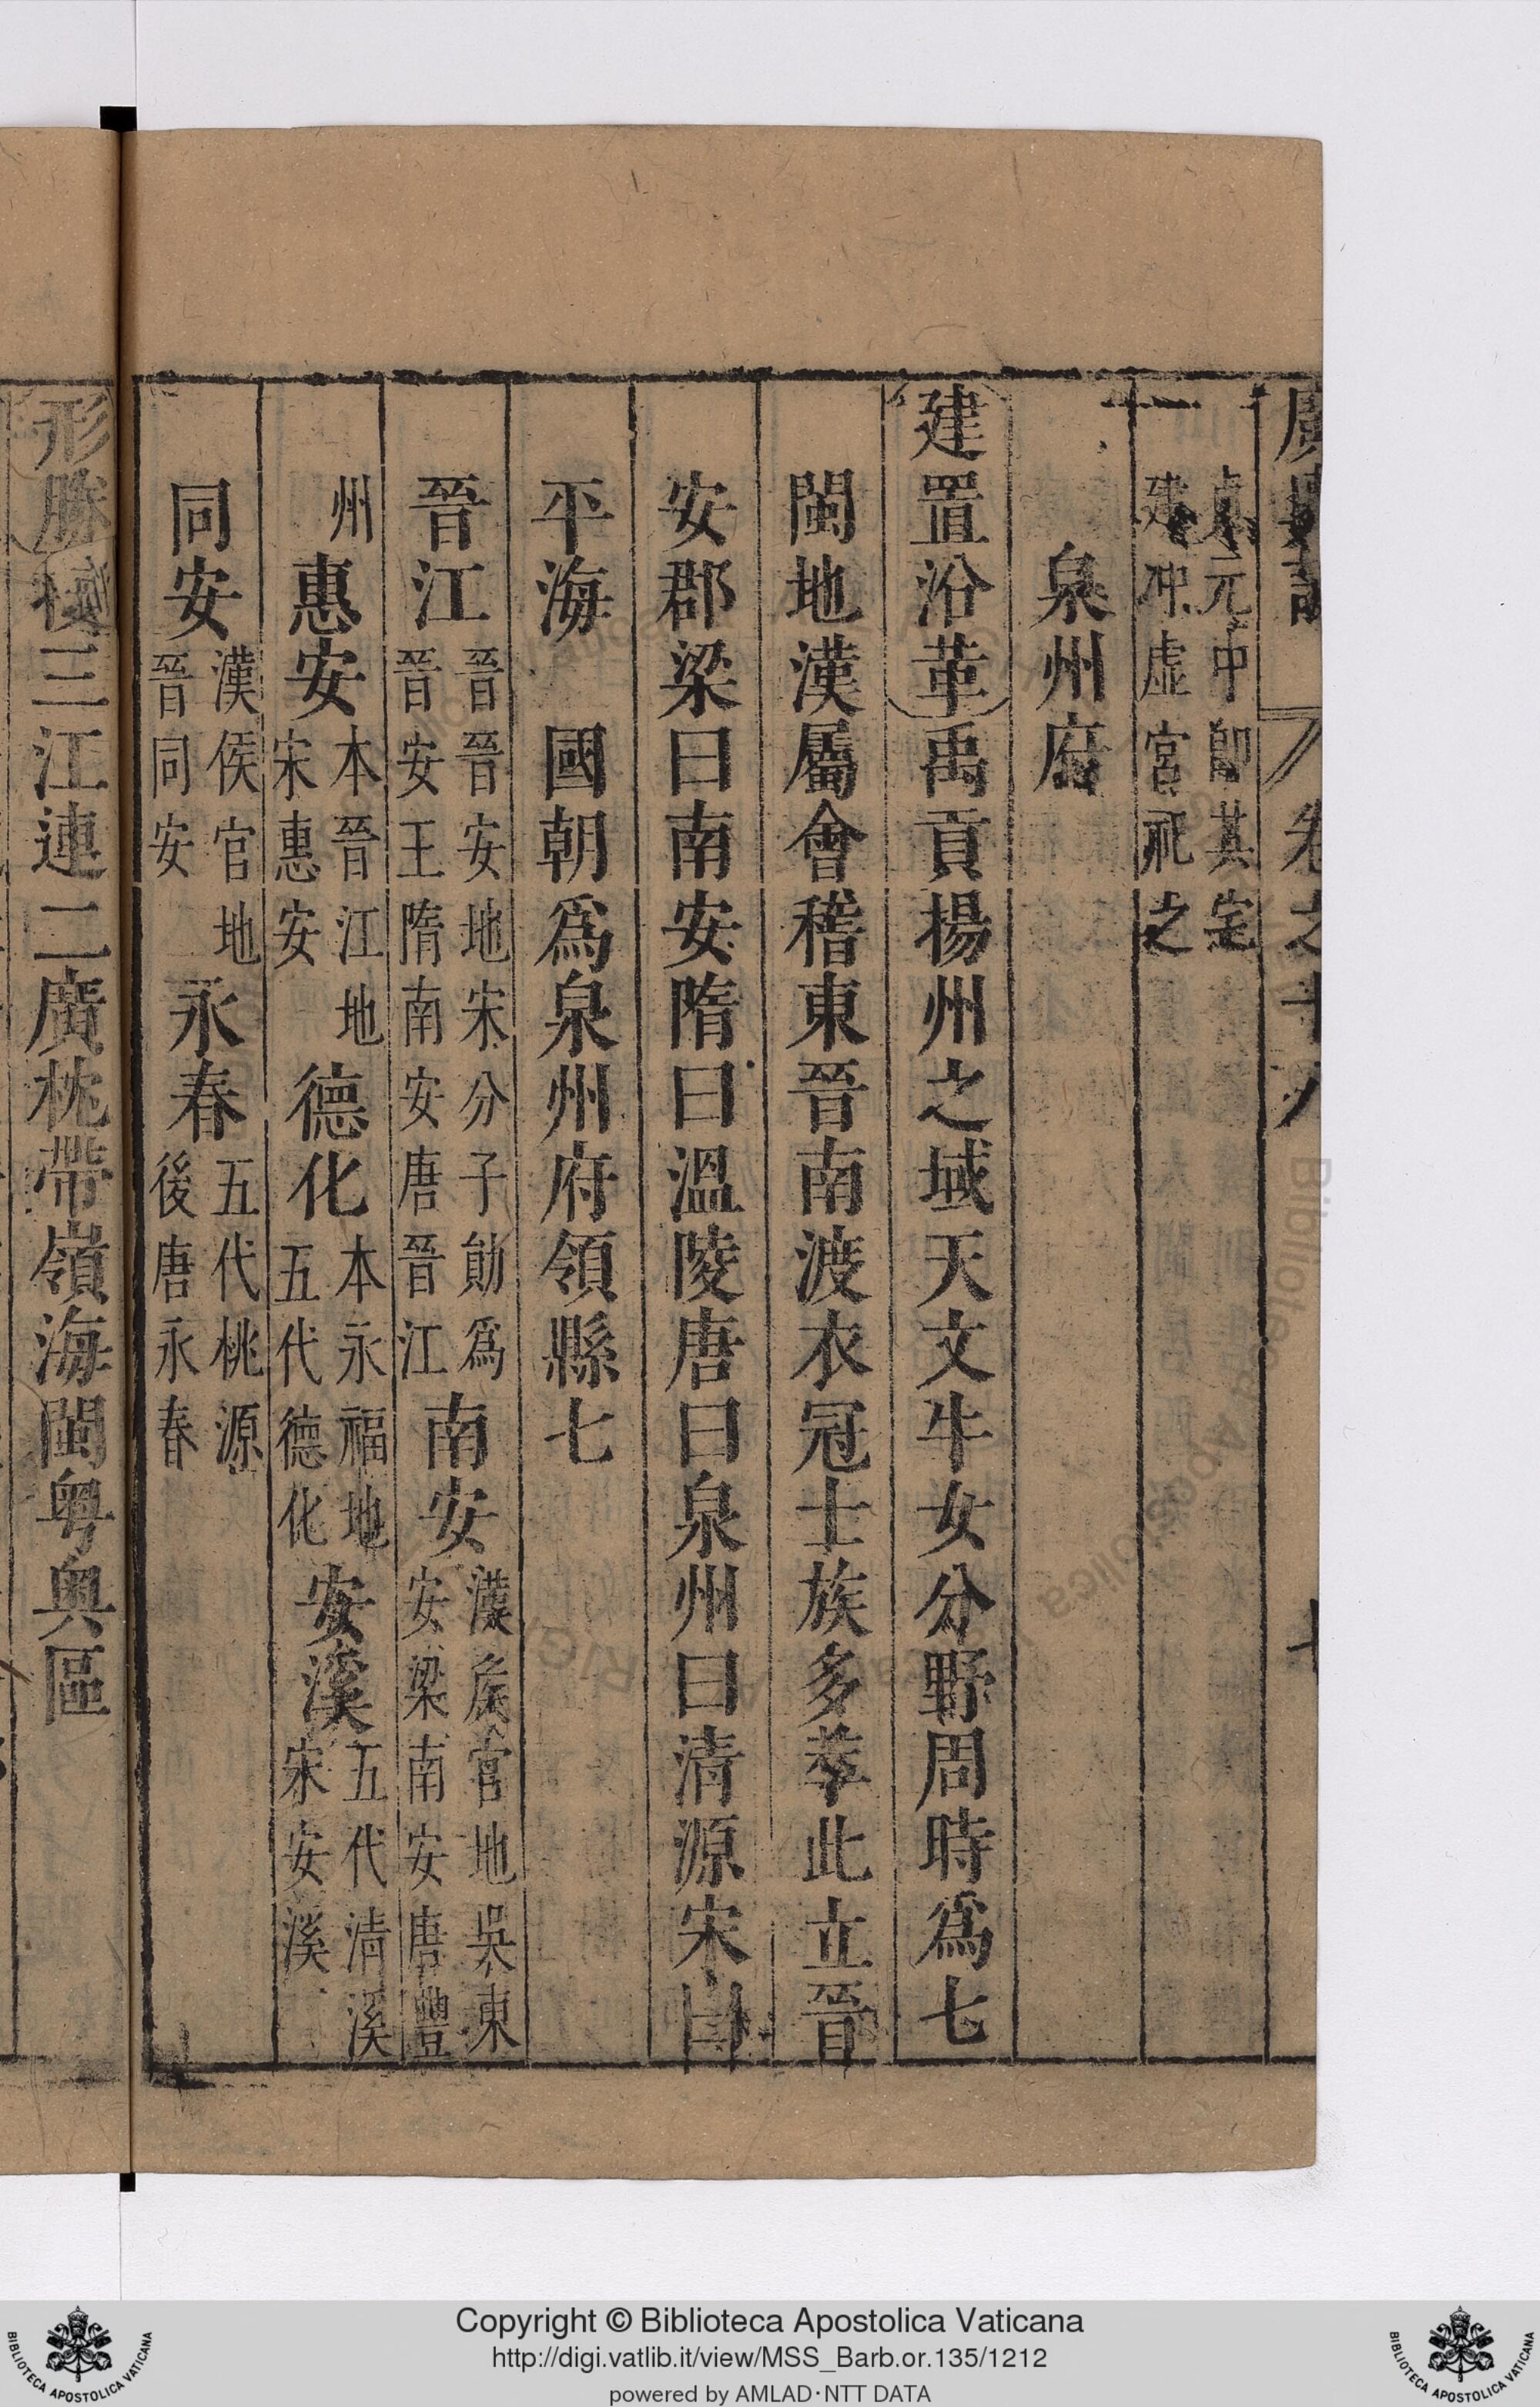 卷之十八
貞元中卽其宅
建冲虛宮祀之
泉州府
建置沿革禹貢揚州之域天文牛女分野周時爲七
閩地漢屬會稽東晉南渡衣冠士族多萃此立晉
安郡梁曰南安隋曰溫陵唐曰泉州曰清源宋曰
平海 國朝爲泉州府領縣七
晉江晉晉安地宋分子勛爲晉安王隋南安唐晉江南安漢侯官地吳東安梁南安唐豐
州惠安本晉江地宋惠安德化本永福地五代德化安溪五代清溪宋安溪
同安漢侯官地晉同安永春五代桃源後唐永春
形勝 三江連二廣枕帶嶺海閩粵奥區
Copyright © Biblioteca Apostolica Vaticana
http://digi.vatlib.it/view/MSS_Barb.or.135/1212
powered by AMLAD·NTT DATA
BIBLIOTECA APOSTOLICA VATICANA
BIBLIOTECA APOSTOLICA VATICANA